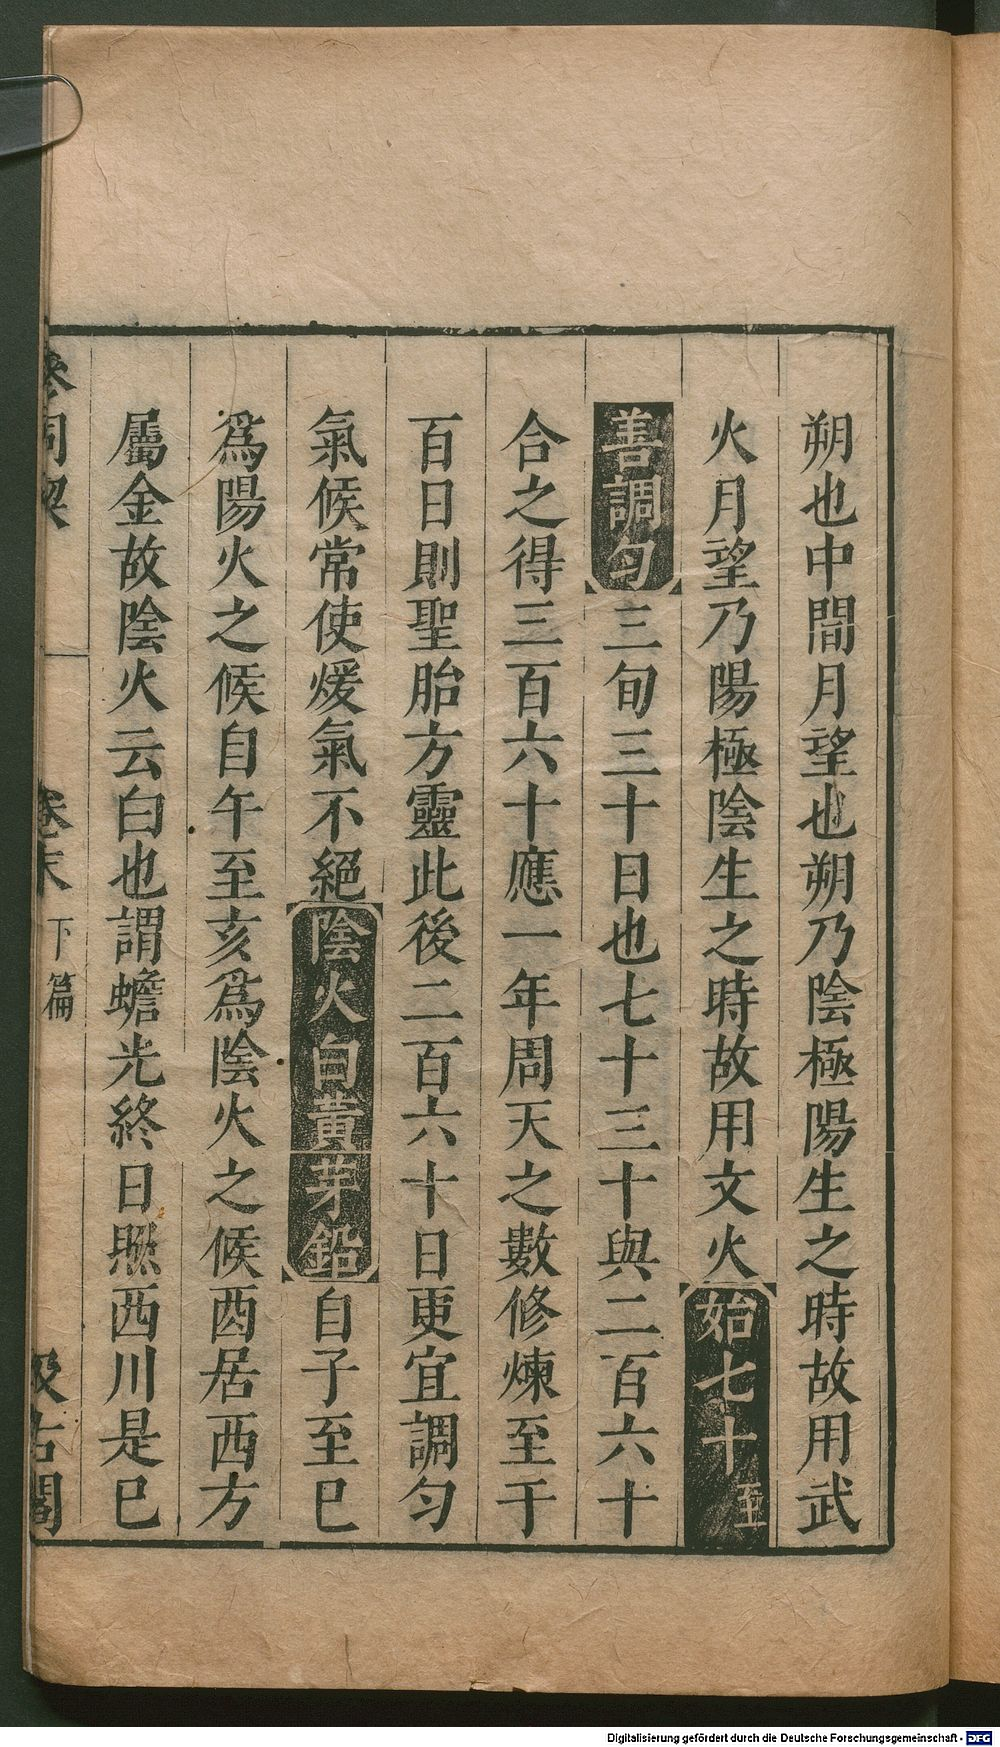 朔也中間月望也朔乃陰極陽生之時故用武
火月望乃陽極陰生之時故用文火始七十至
善調勻三旬三十日也七十三十與二百六十
合之得三百六十應一年周天之數修煉至于
百日則聖胎方靈此後二百六十日更宜調勻
氣候常使煖氣不絕陰火白黃芽鉛自子至巳
爲陽火之候自午至亥爲陰火之候酉居西方
屬金故陰火云白也謂蟾光終日照西川是巳
參同契 卷末 下篇 汲古閣
Digitalisierung gefördert durch die Deutsche Forschungsgemeinschaft - DFG